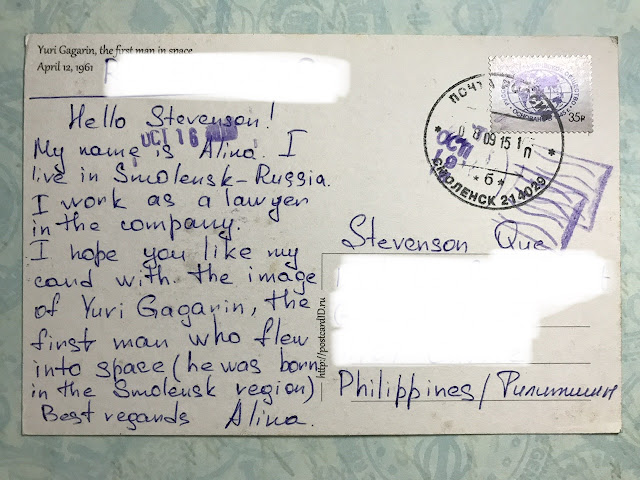 Yuri Gagarin, the first man in space
April 12, 1961
Hello Stevenson!
OCT 16
My name is Alina. I
live in Smolensk-Russia.
I work as a lawyer
in the company.
I hope you like my
card with the image
of Yuri Gagarin, the
first man who flew
into space (he was born
in the Smolensk region)
Best regards Alina.
http://postcardID.ru
35₽
ПОЧТА РОССИИ
09 15
П
* б *
СМОЛЕНСК 214029
Stevenson Que
Philippines/Филиппин